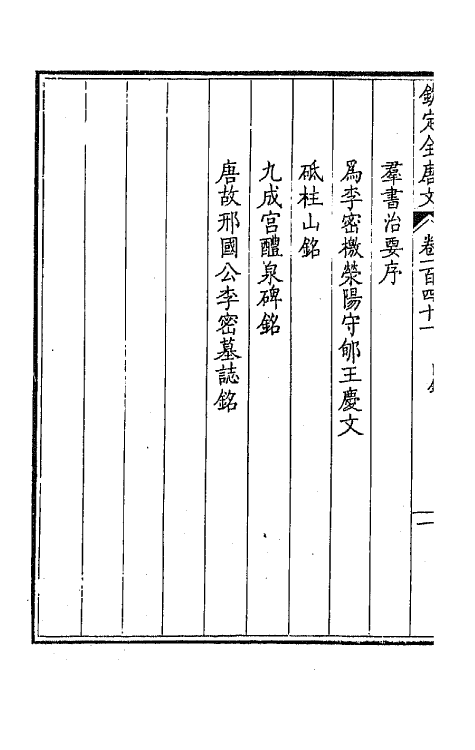 欽定全唐文 卷一百四十一 目錄 二
羣書治要序
爲李密檄滎陽守郇王慶文
砥柱山銘
九成宮醴泉碑銘
唐故邢國公李密墓誌銘